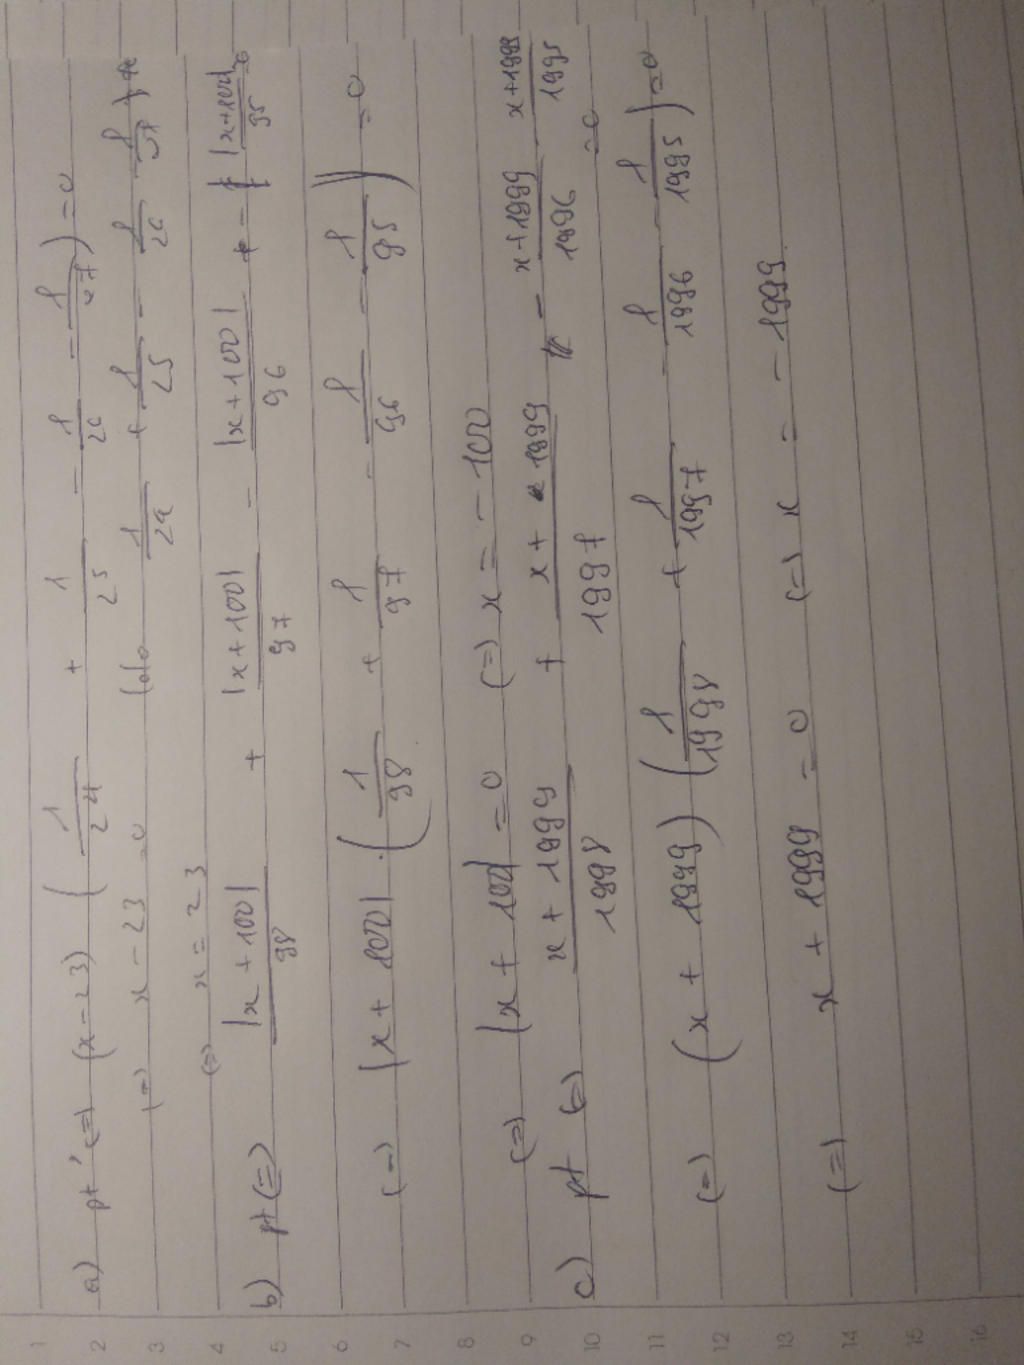 a) pt (=) (x-23) (1/24 + 1/25 - 1/26 - 1/27) = 0
(=) x - 23 = 0 (do 1/24 + 1/25 - 1/26 - 1/27
(=) x = 23
b) pt (=) |x+100|/98 + |x+100|/97 - |x+100|/96 - |x+100|/95 = 0
(=) |x+100| . (1/98 + 1/97 - 1/96 - 1/95) = 0
(=) |x+100| = 0 (=) x = -100
c) pt (=) x+1999/1998 + x+1999/1997 - x+1999/1996 - x+1999/1995 = 0
(=) (x+1999) (1/1998 + 1/1997 - 1/1996 - 1/1995) = 0
(=) x + 1999 = 0 (=) x = -1999
1
2
3
4
5
6
7
8
9
10
11
12
13
14
15
16